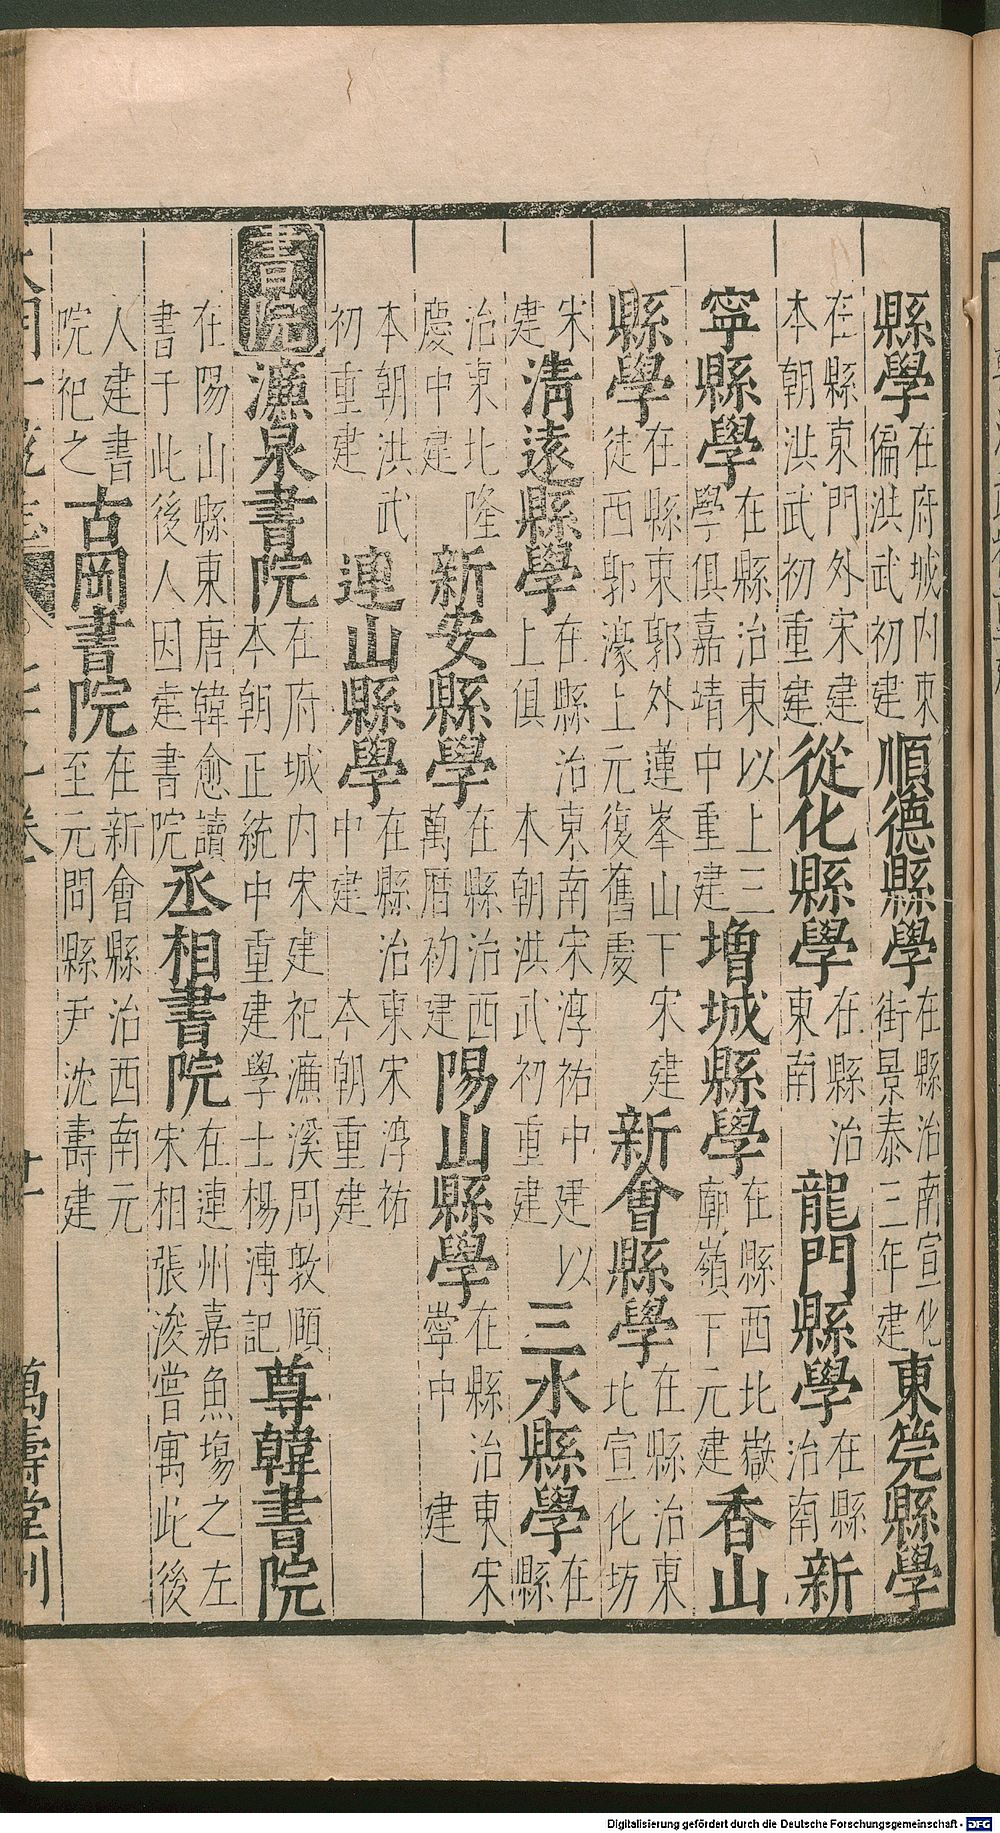 縣學在府城内東偏洪武初建順德縣學在縣治南宣化街景泰三年建東筦縣學
在縣東門外宋建本朝洪武初重建從化縣學在縣治東南龍門縣學在縣治南新
寧縣學在縣治東以上三學俱嘉靖中重建增城縣學在縣西北嶽廟嶺下元建香山
縣學在縣東郭外蓮峯山下宋建徒西郭濠上元復舊處新會縣學在縣治東北宣化坊
宋建清遠縣學在縣治東南宋淳祐中建以上俱本朝洪武初重建三水縣學在縣
治東北隆慶中建新安縣學在縣治西萬曆初建陽山縣學在縣治東宋寧中建
本朝洪武初重建連山縣學在縣治東宋淳祐中建本朝重建
書院濂泉書院在府城内宋建祀濂溪周敦頤本朝正統中重建學士楊溥記尊韓書院
在陽山縣東唐韓愈讀書于此後人因建書院丞相書院在連州嘉魚塲之左宋相張浚嘗寓此後
人建書院祀之古岡書院在新會縣治西南元至元間縣尹沈壽建
萬壽堂刊
Digitalisierung gefördert durch die Deutsche Forschungsgemeinschaft - DFG